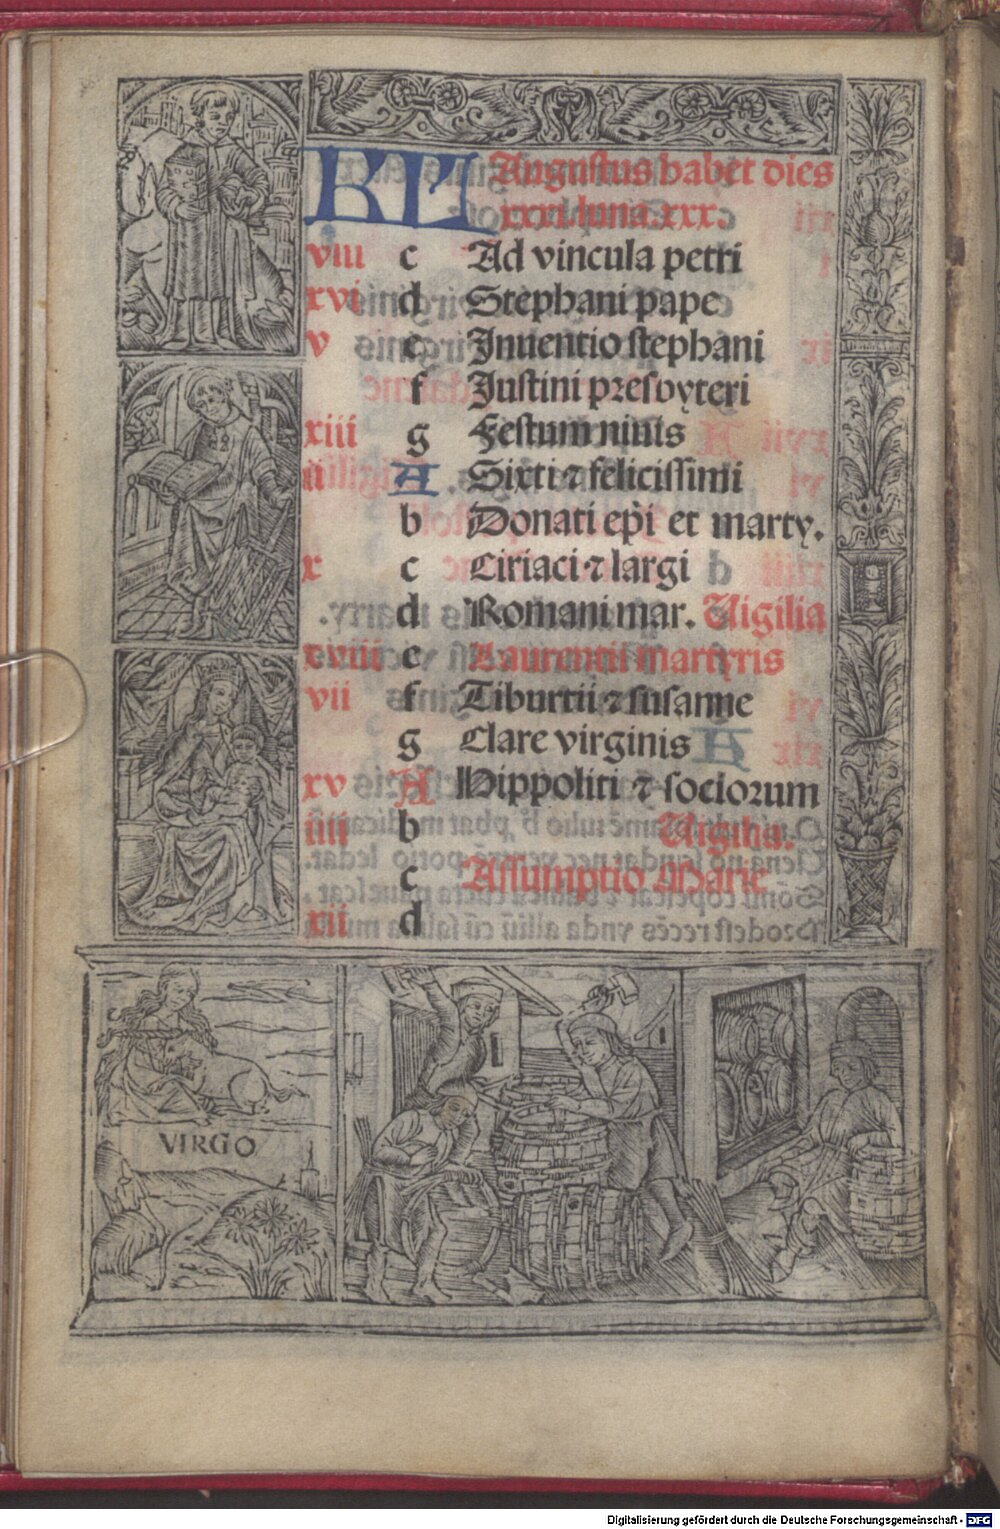 KL Augustus habet dies
xxxi. luna. xxx.
viii c Ad vincula petri
xvi d Stephani pape
v e Inuentio stephani
f Iustini presbyteri
xiii g Festum niuis
ii A Sixti ⁊ felicissimi
b Donati ep̄i et marty.
x c Ciriaci ⁊ largi
d Romani mar. Uigilia
xviii e Laurentii martyris
vii f Tiburtii ⁊ susanne
g Clare virginis
xv A Hippoliti ⁊ sociorum
iiii b Uigilia.
c Assumptio Marie
xii d
VIRGO
Digitalisierung gefördert durch die Deutsche Forschungsgemeinschaft - DFG